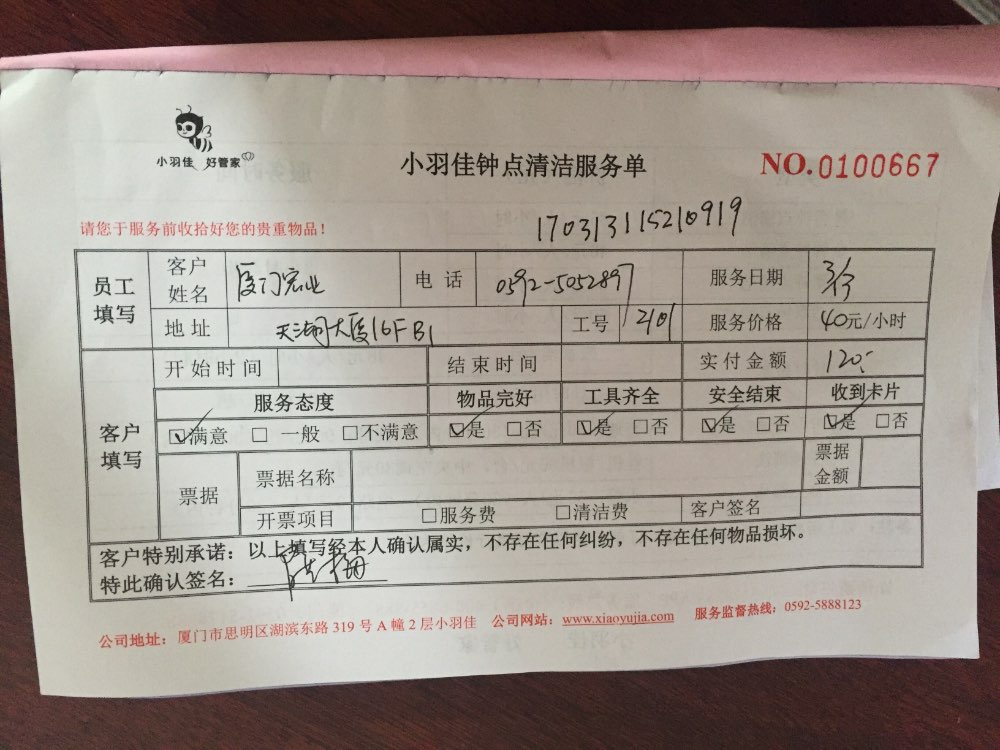 小羽佳 好管家
小羽佳钟点清洁服务单
NO.0100667
请您于服务前收拾好您的贵重物品！
170313115210919
员工填写 客户姓名 厦门宏业 电话 0592-5052897 服务日期 3/13
地址 天湖大厦16F B1 工号 2101 服务价格 40元/小时
客户填写 开始时间 结束时间 实付金额 120
服务态度 物品完好 工具齐全 安全结束 收到卡片
☑满意 □一般 □不满意 ☑是 □否 ☑是 □否 ☑是 □否 ☑是 □否
票据 票据名称 票据金额
开票项目 □服务费 □清洁费 客户签名
客户特别承诺：以上填写经本人确认属实，不存在任何纠纷，不存在任何物品损坏。
特此确认签名：
公司地址：厦门市思明区湖滨东路 319 号 A 幢 2 层小羽佳 公司网站：www.xiaoyujia.com 服务监督热线：0592-5888123